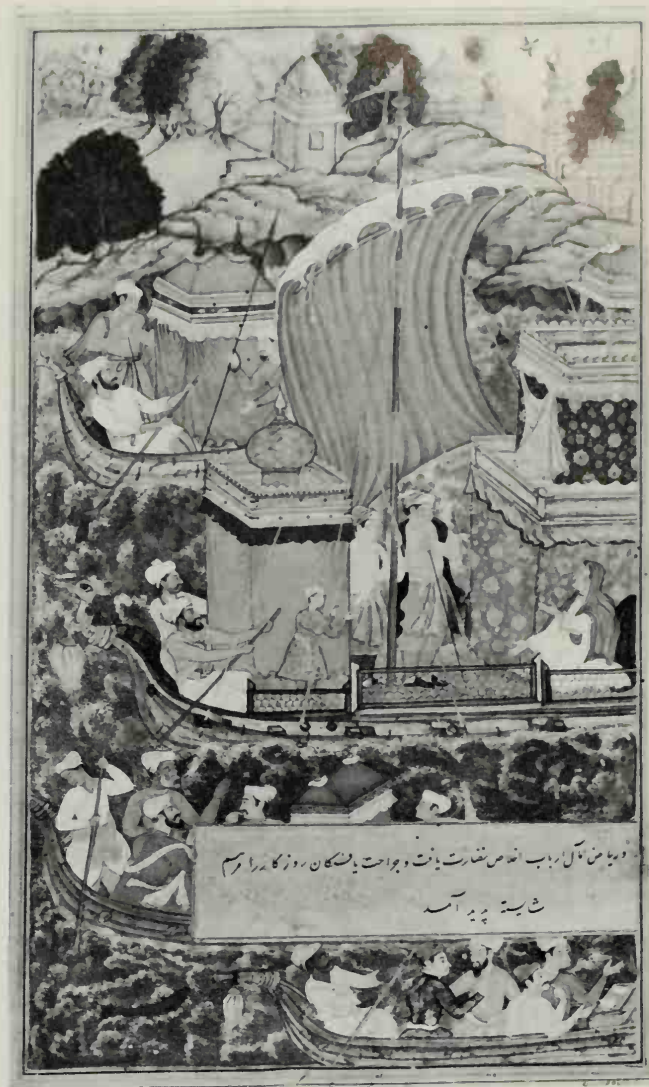 و ریاض آمال ارباب اخلاص نضارت یافت و جراحت یافتکان روزکار را مرهم
شایسته پدید آمد